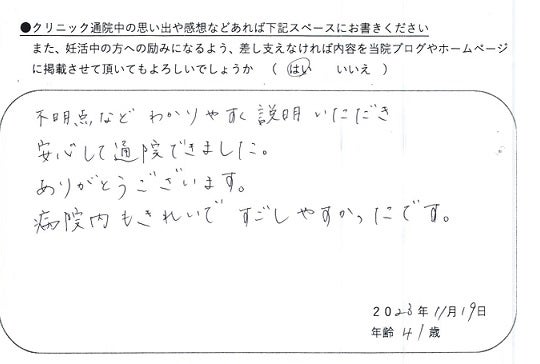 ●クリニック通院中の思い出や感想などあれば下記スペースにお書きください
また、妊活中の方への励みになるよう、差し支えなければ内容を当院ブログやホームページ
に掲載させて頂いてもよろしいでしょうか （ はい　いいえ ）
不明点など わかりやすく説明いただき
安心して通院できました。
ありがとうございます。
病院内もきれいで すごしやすかったです。
2023年11月19日
年齢 41歳